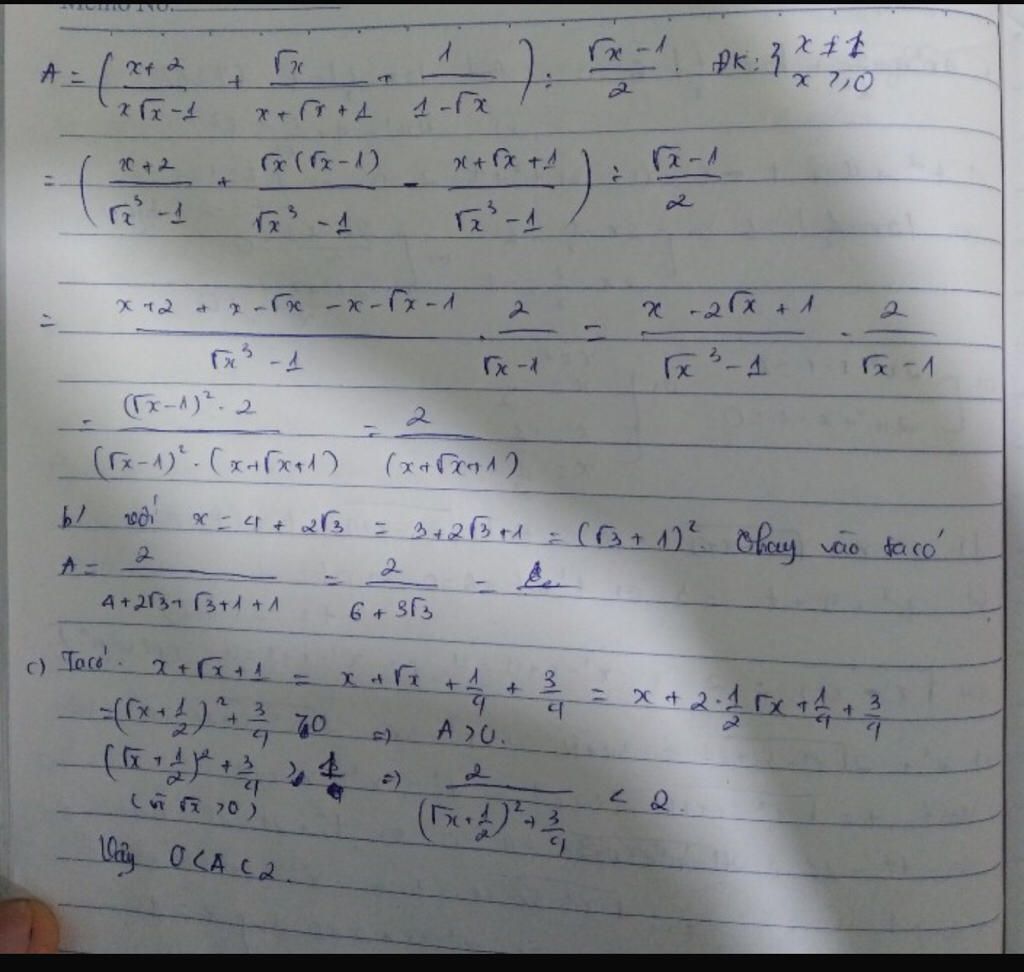 Memo No.
A = ( (x+2)/(x√x-1) + √x/(x+√x+1) + 1/(1-√x) ) : (√x-1)/2. ĐK: { x ≠ 1
x ≥ 0
= ( (x+2)/(√x³-1) + √x(√x-1)/(√x³-1) - (x+√x+1)/(√x³-1) ) : (√x-1)/2
= (x+2+x-√x-x-√x-1)/(√x³-1) · 2/(√x-1) = (x-2√x+1)/(√x³-1) · 2/(√x-1)
= (√x-1)²·2/((√x-1)²·(x+√x+1)) = 2/(x+√x+1)
b/ với x = 4+2√3 = 3+2√3+1 = (√3+1)². Thay vào ta có
A = 2/(4+2√3+√3+1+1) = 2/(6+3√3) =
c) Ta có. x+√x+1 = x+√x+1/4+3/4 = x+2·1/2√x+1/4+3/4
=(√x+1/2)²+3/4 >0 => A>0.
(√x+1/2)²+3/4 > 1 => 2/((√x+1/2)²+3/4) < 2.
(vì √x >0)
Vậy 0<A<2.